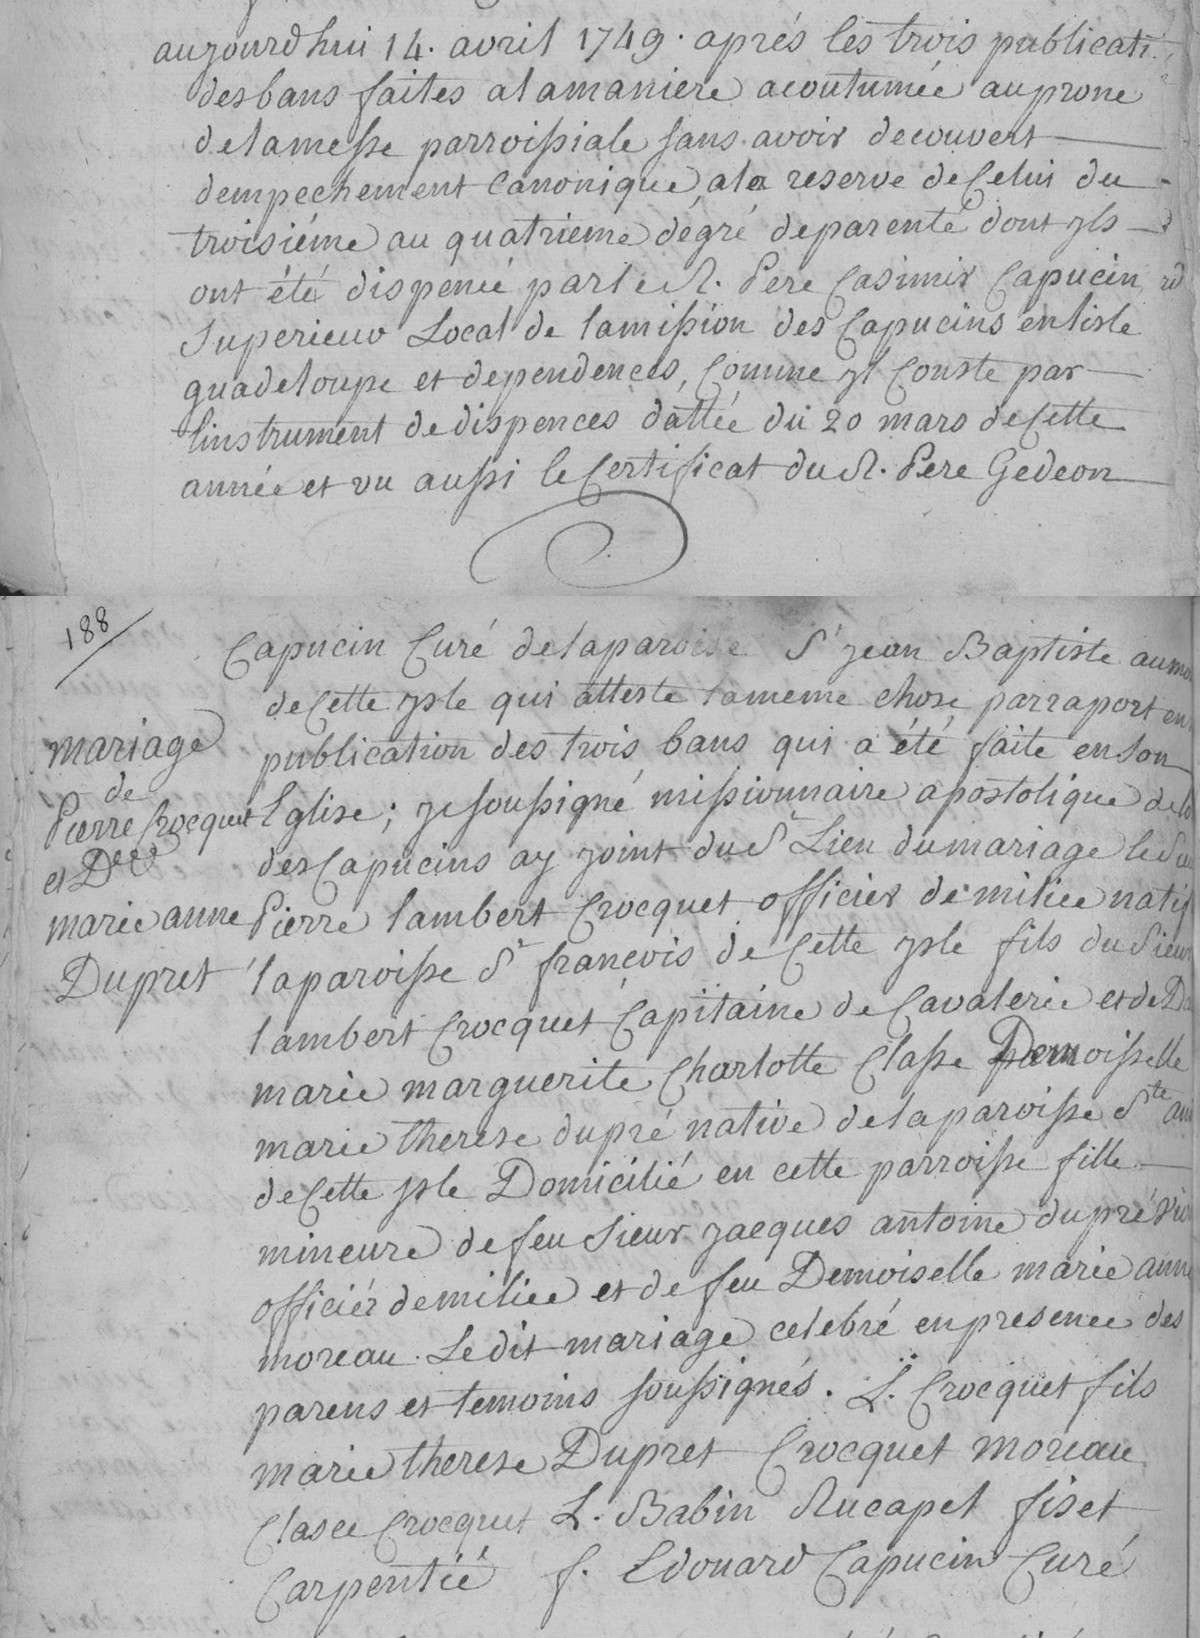 aujourdhui 14. avril 1749. aprés les trois publicati
desbans faites alamaniere acoutumée auprone
delamesse parroissiale sans avoir decouvert
dempechement Canonique ala reserve deCelui du
troisiéme au quatriéme dégré deparenté dont yls
ont été dispencé parle R. Pere Casimir Capucin
Superieur Local de lamission des Capucins enlisle
guadeloupe et dependences, Comme yl Conste par
linstrument dedispences dattée du 20 mars deCette
année et vu aussi le Certificat du R. Pere Gedeon
188
Capucin Curé delaparoisse St jean Baptiste au
deCette ysle qui atteste lameme chose parraport
publication des trois bans qui a été faite enson
Eglise; je soussigné missionnaire apostolique
des Capucins ay joint du St Lien dumariage le
Pierre lambert Crocquet officier demilice natif
laparoisse St francois de Cette ysle fils du Sieur
lambert Crocquet Capitaine de Cavalerie et de
marie marguerite Charlotte Classe Demoisselle
marie therese dupré native delaparoisse Ste
deCette ysle Domicilié en cette parroisse fille
mineure defeu Sieur jacques antoine dupré
officiér demilice et de feu Demoiselle marie anne
moreau. Ledit mariage celebré enpresence des
parens et temoins soussignés. L. Crocquet fils
marie therese Dupret Crocquet moreau
Clasce Crocquet L. Babin Rucapet fiset
Carpentié f. Edouard Capucin Curé
mariage
de
Pierre Crocquet
et Dlle
marie anne
Dupret